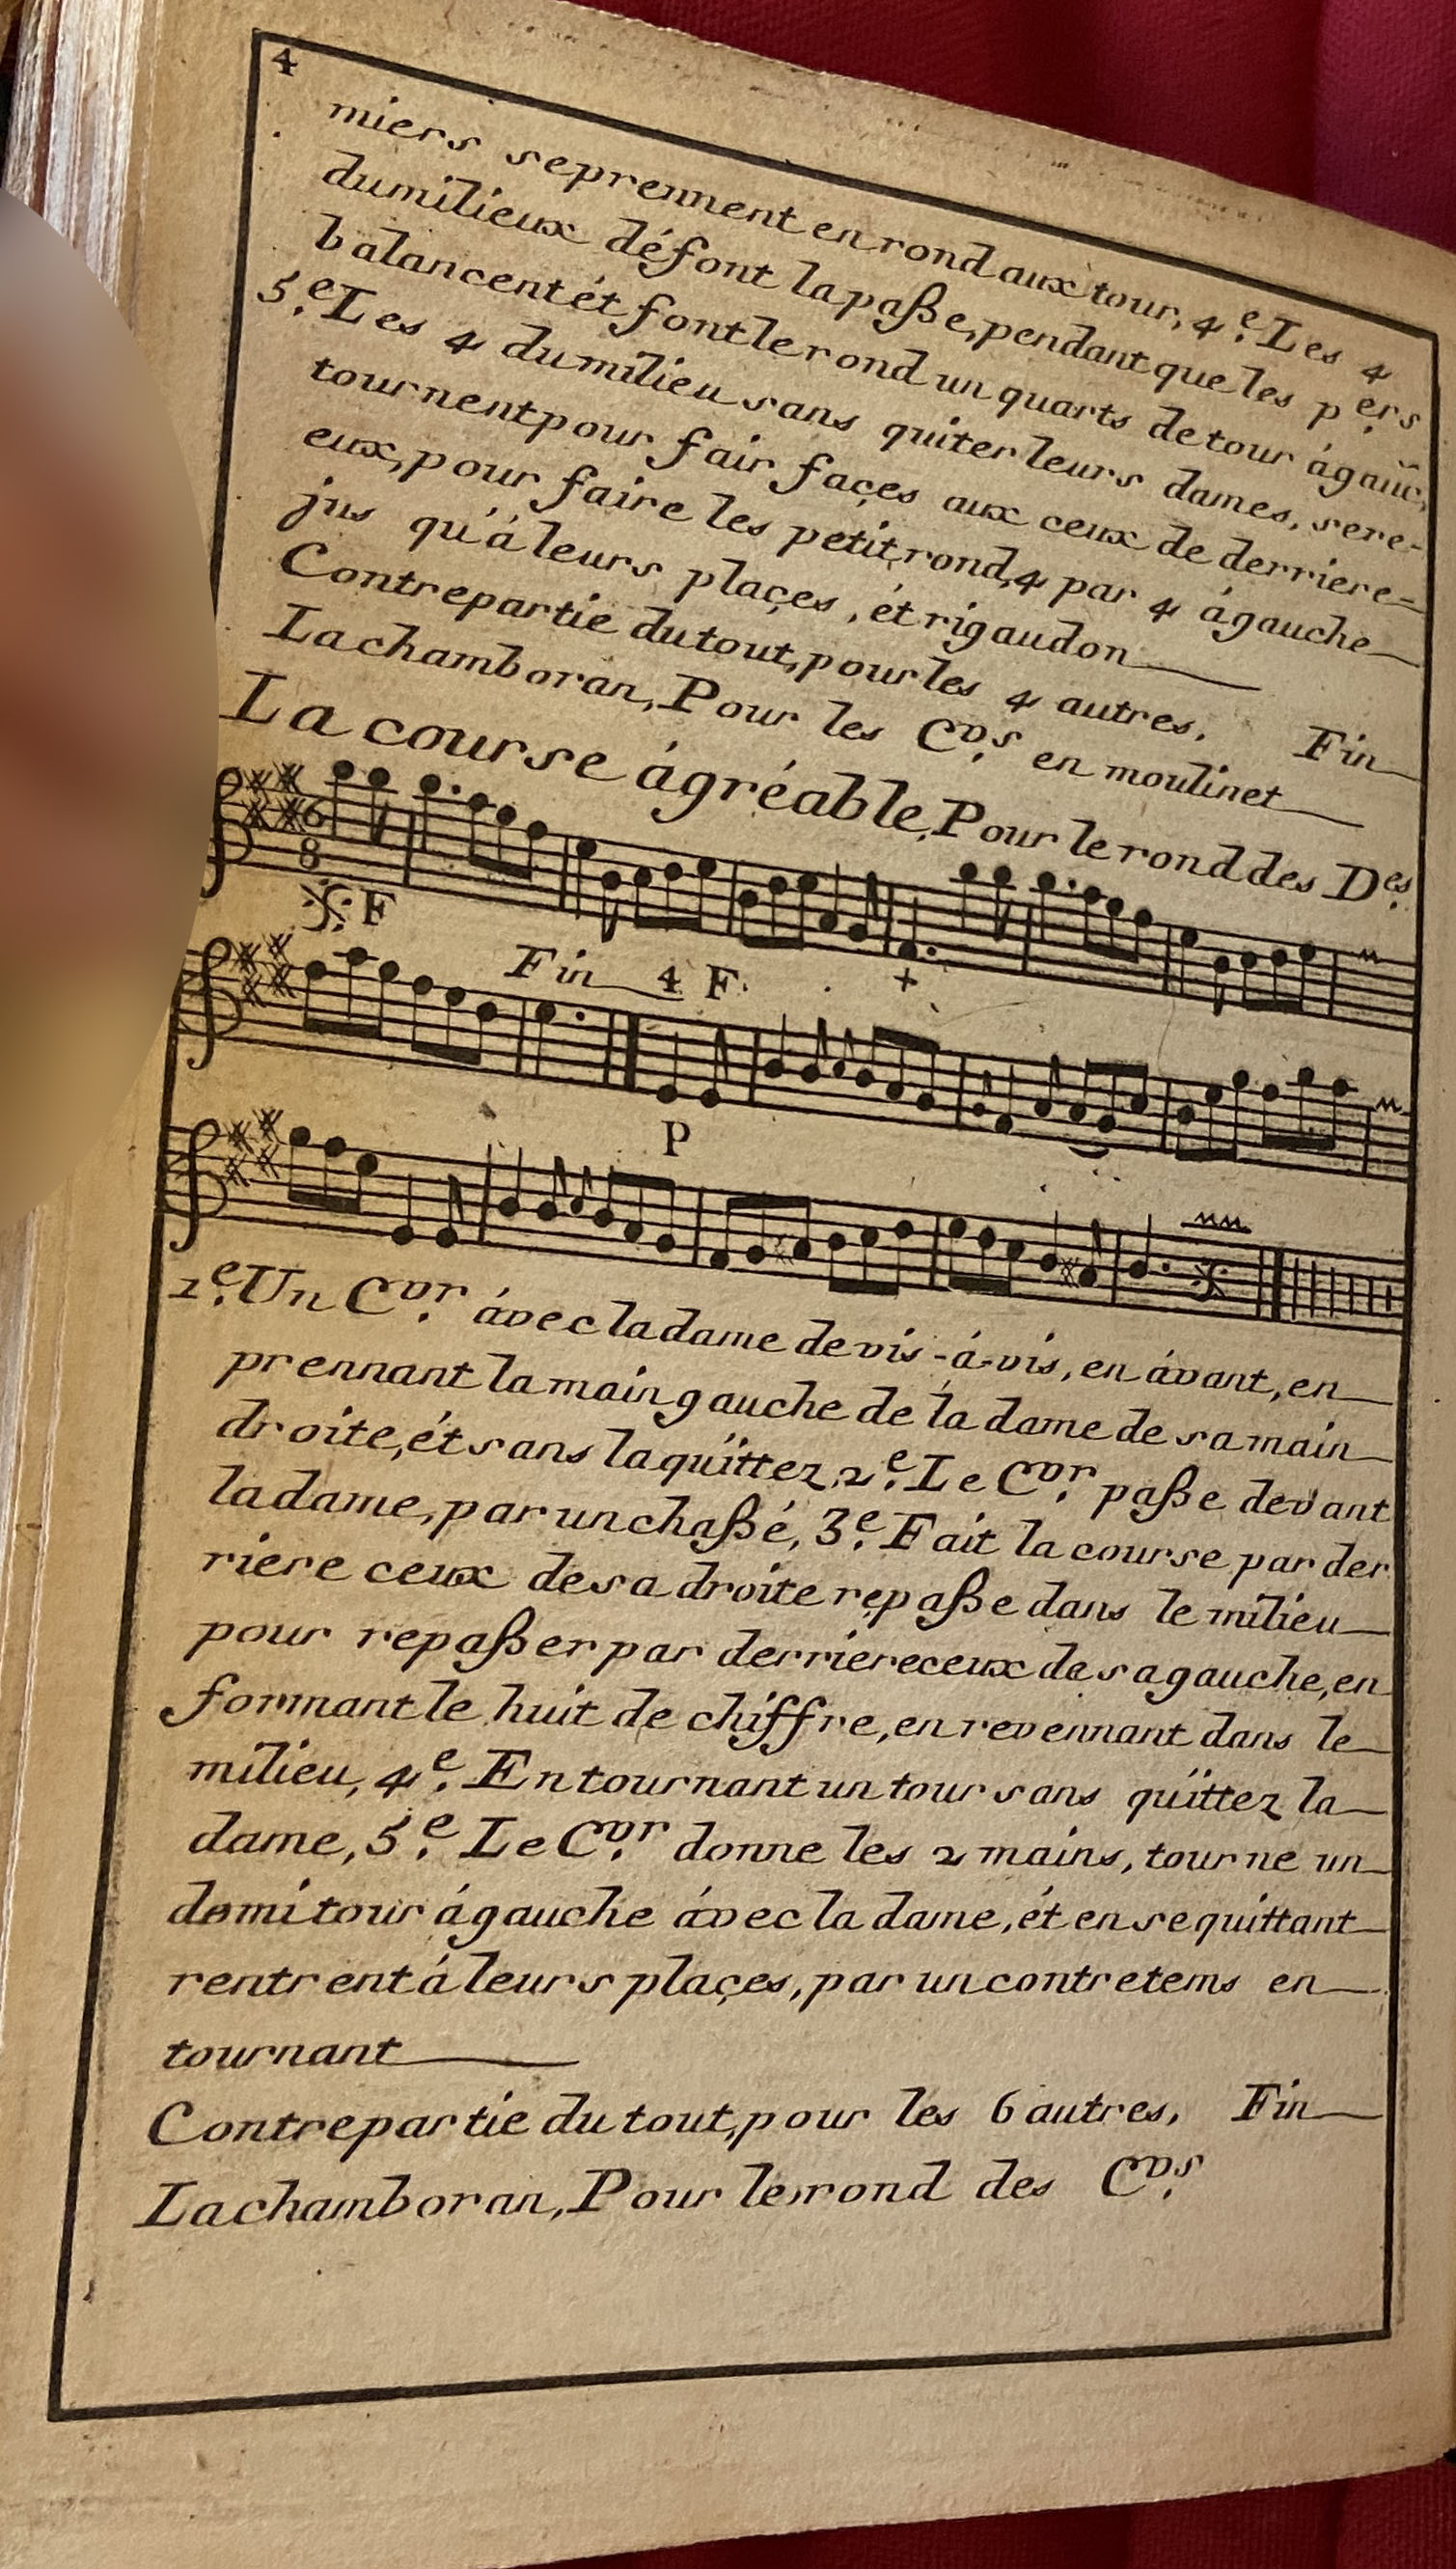 4
miers se prennent en rond aux tour, 4.e Les 4
du milieux défont la paße, pendant que les p.ers
balancent ét font le rond un quarts de tour á gauc.
5.e Les 4 du milieu sans quiter leurs dames, se re-
tournent pour fair façes aux ceux de derriere=
eux, pour faire les petit rond, 4 par 4 á gauche
jus qu'á leurs plaçes, ét rigaudon
Contrepartie du tout, pour les 4 autres. Fin
La chamboran, Pour les C.vrs en moulinet
La course ágréable, Pour le rond des D.es
6
8
F
+
Fin 4 F.
P
1.e Un C.vr ávec la dame de vis-á-vis, en ávant, en
prennant la main gauche de la dame de sa main
droite, ét sans la quïttez, 2.e Le C.vr paße devant
la dame, par un chaßé, 3.e Fait la course par der
riere ceux de sa droite repaße dans le milieu
pour repaßer par derriere ceux de sa gauche, en
formant le huit de chiffre, en revennant dans le
milieu, 4.e En tournant un tour sans quïttez la
dame, 5.e Le C.vr donne les 2 mains, tourne un
demi tour á gauche ávec la dame, ét en se quittant
rentrent á leurs plaçes, par un contretems en
tournant
Contrepartie du tout, pour les 6 autres. Fin
La chamboran, Pour le rond des C.vrs